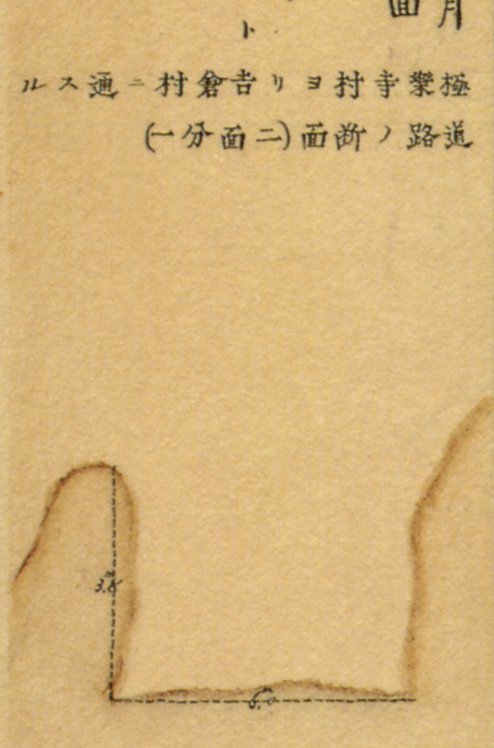 月
面
ト
極樂寺村ヨリ吉倉村ニ通スル
道路ノ断面(二面分一)
3.5
6.0